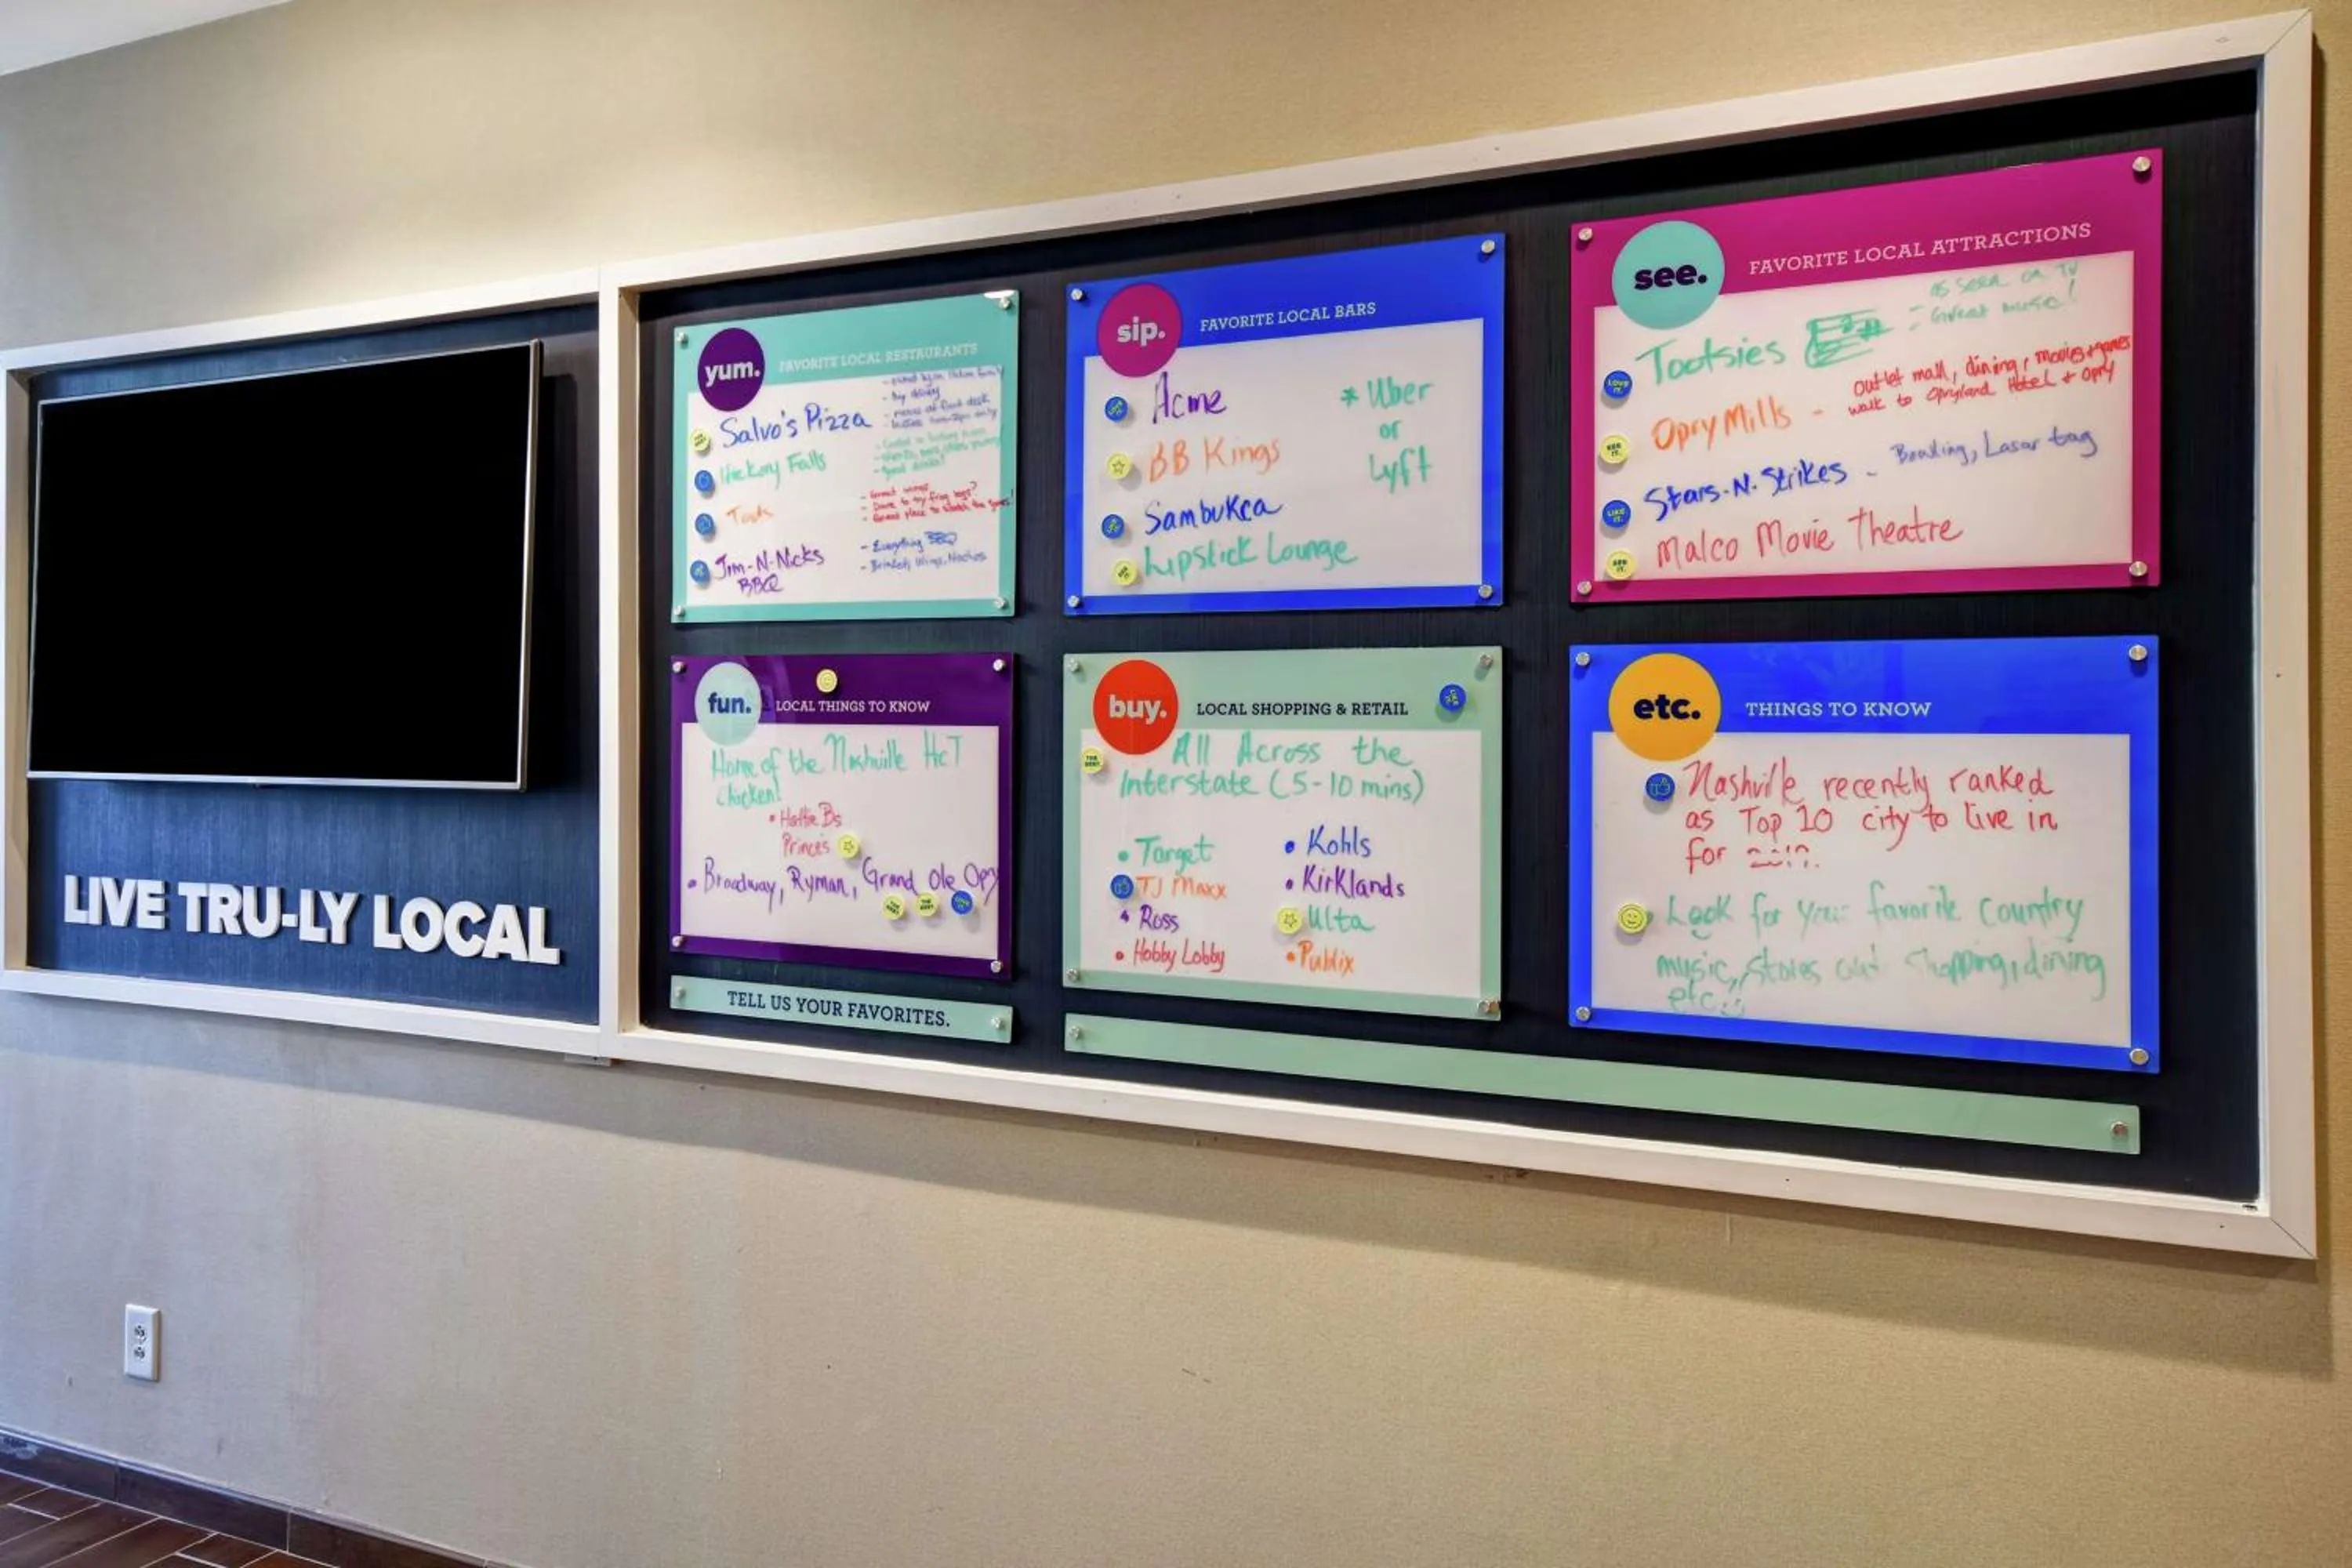 LIVE TRU-LY LOCAL
yum.
FAVORITE LOCAL RESTAURANTS
Salvo's Pizza
Hickory Falls
- Great wings
- Dare to try frog legs?
- Great place to watch the game!
Jim-N-Nicks
BBQ
- Everything BBQ
- Brisket, Wings, Nachos
sip.
FAVORITE LOCAL BARS
Acme
BB Kings
Sambukca
Lipstick Lounge
* Uber
or
Lyft
see.
FAVORITE LOCAL ATTRACTIONS
Tootsies
= as seen on TV
= Great music!
Opry Mills -
outlet mall, dining, movies + games
walk to Opryland Hotel + Opry
Stars-N-Strikes - Bowling, Lasar tag
Malco Movie Theatre
LOVE IT.
LIKE IT.
fun.
LOCAL THINGS TO KNOW
Home of the Nashville HOT
Chicken!
• Hattie Bs
Princes
• Broadway, Ryman, Grand Ole Opry
TELL US YOUR FAVORITES.
buy.
LOCAL SHOPPING & RETAIL
THE BEST.
All Across the
Interstate (5-10 mins)
• Target
TJ Maxx
• Ross
• Hobby Lobby
• Kohls
• Kirklands
Ulta
• Publix
etc.
THINGS TO KNOW
Nashville recently ranked
as Top 10 city to live in
for
Look for your favorite country
music, stores out shopping, dining
etc